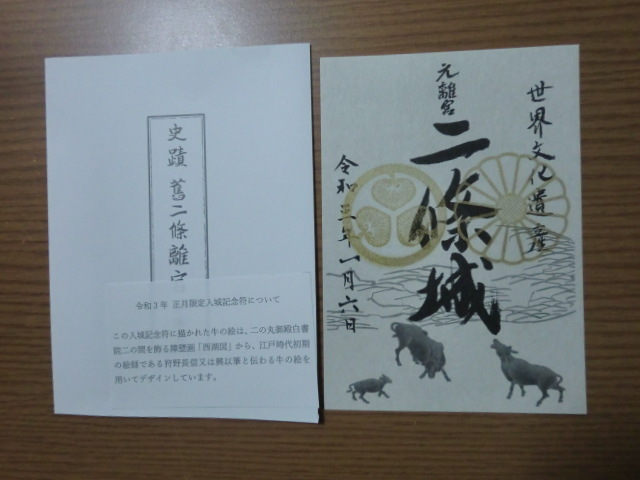 史蹟 舊二條離宮
令和3年 正月限定入城記念符について
この入城記念符に描かれた牛の絵は、二の丸御殿白書
院二の間を飾る障壁画「西湖図」から、江戸時代初期
の絵師である狩野長信又は興以筆と伝わる牛の絵を
用いてデザインしています。
世界文化遺産
元離宮
二條城
令和三年一月六日